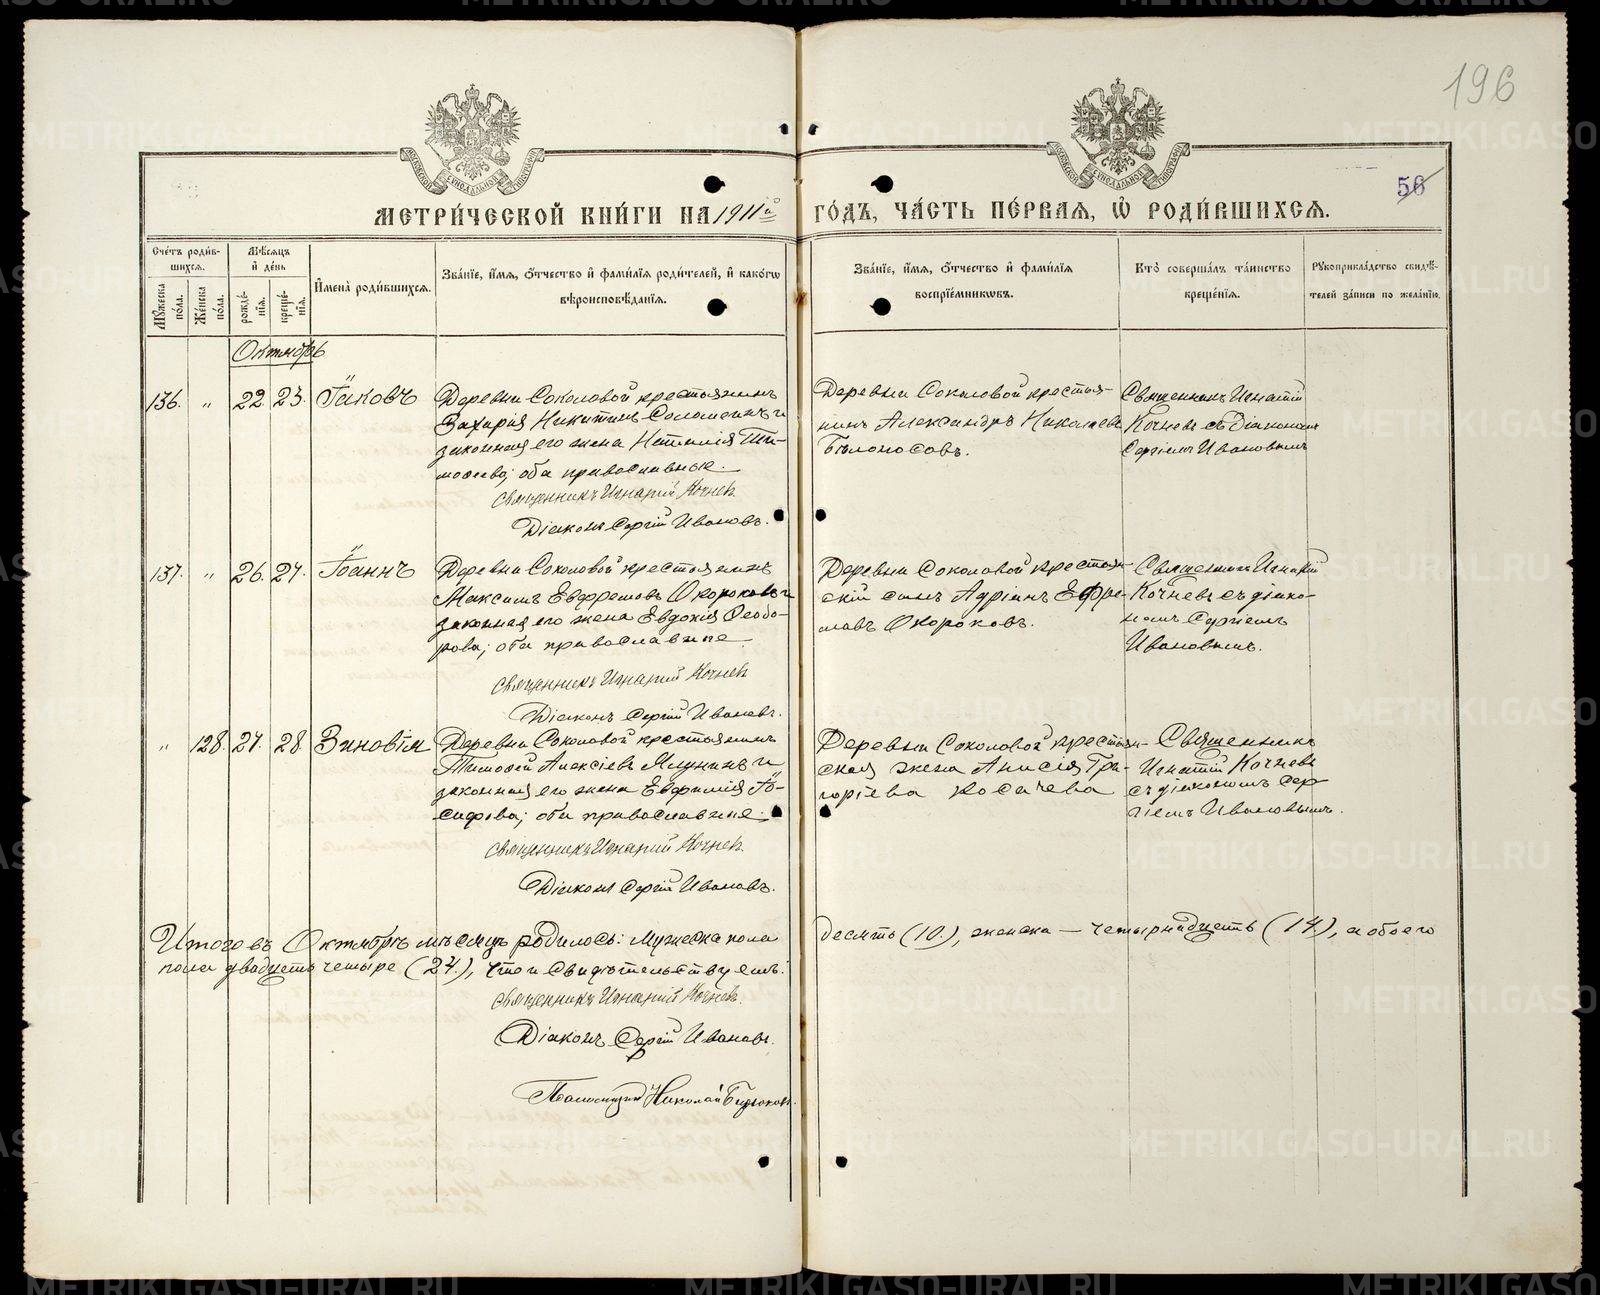 196
56
МЕТРИ́ЧЕСКОЙ КНИ́ГИ НА 1911й ГО́ДЪ, ЧА́СТЬ ПЕ́РВАЯ, Ѡ РОДИ́ВШИХСЯ.
Сче́тъ роди́вшихся.
Мѣ́сяцъ и де́нь
Му́жеска по́ла.
Же́нска по́ла.
рожде́нія.
креще́нія.
Имена̀ роди́вшихся.
Зва́ніе, и́мя, о́тчество и фами́лія роди́телей, и како́гѡ
вѣроисповѣ́данія.
Зва́ніе, и́мя, о́тчество и фами́лія
воспріе́мниковъ.
Кто̀ соверша́лъ та́инство
креще́нія.
Рукоприкла́дство свидѣ́-
телей за́писи по жела́нію.
Октябрь
136. " 22 23. Іаковъ
Деревни Соколовой крестьянинъ
Захарія Никитинъ Соломеинъ и
законная его жена Наталія Ти-
моѳеева; оба православные.
Священникъ Игнатій Кочнев.
Діаконъ Сергій Ивановъ.
Деревни Соколовой крестья-
нинъ Александръ Николаевъ
Бѣлоносовъ.
Священникъ Игнатій
Кочневъ съ діакономъ
Сергіемъ Ивановымъ
137. " 26. 27. Іоаннъ
Деревни Соколовой крестьянинъ
Максимъ Евфремовъ Окороковъ и
законная его жена Евдокія Ѳеодо-
рова; оба православные
Священникъ Игнатій Кочнев
Діаконъ Сергій Ивановъ.
Деревни Соколовой крестьян-
скій сынъ Адріанъ Ефре-
мовъ Окороковъ.
Священникъ Игнатій
Кочневъ съ діако-
номъ Сергіемъ
Ивановымъ.
" 128. 27. 28. Зиновія
Деревни Соколовой крестьянинъ
Тимоѳей Алексіевъ Мячнинъ и
законная его жена Евфимія Іо-
сифова; оба православные.
Священникъ Игнатій Кочнев.
Діаконъ Сергій Ивановъ.
Деревни Соколовой крестьян-
ская жена Анисія Гри-
горіева Косачева
Священникъ
Игнатій Кочневъ
съ діакономъ Сер-
гіемъ Ивановымъ.
Итого въ Октябрѣ мѣсяцѣ родилось: Мужеска пола десять (10.), женска — четырнадцать (14.), а обоего
пола двадцать четыре (24.), что и свидѣтельствуемъ:
Священникъ Игнатій Кочнев.
Діаконъ Сергій Ивановъ.
Псаломщикъ Николай Бирюков.
METRIKI.GASO-URAL.RU